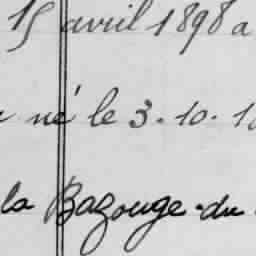 15 avril 1898 a
né le 3.10.1
la Bazouge-du